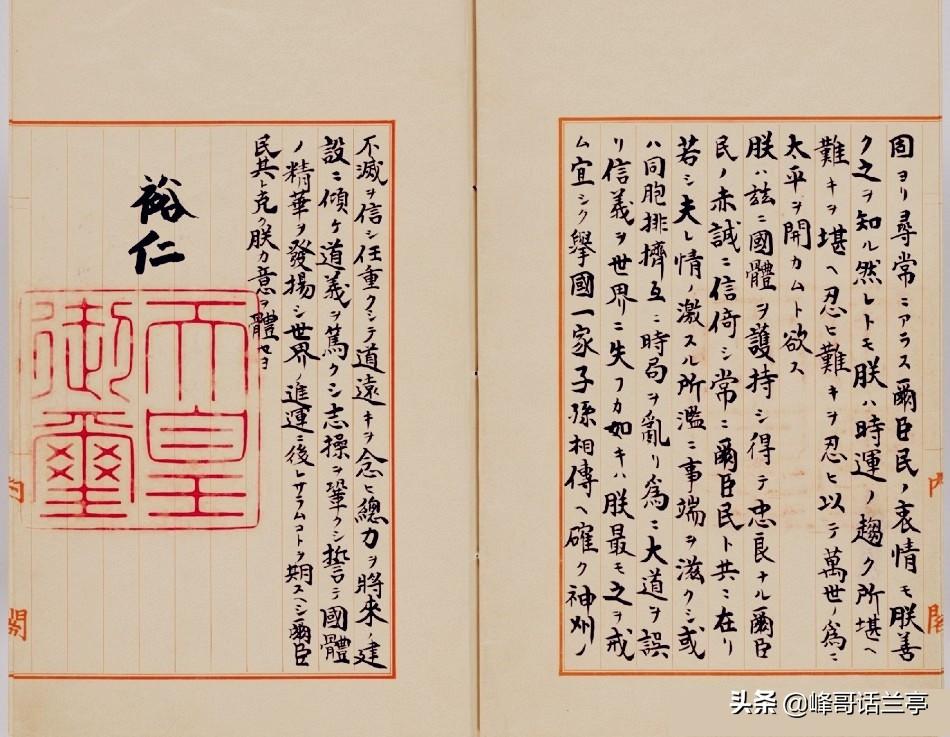 固ヨリ尋常ニアラス爾臣民ノ衷情モ朕善
ク之ヲ知ル然レトモ朕ハ時運ノ趨ク所堪ヘ
難キヲ堪ヘ忍ヒ難キヲ忍ヒ以テ萬世ノ爲ニ
太平ヲ開カムト欲ス
朕ハ茲ニ國體ヲ護持シ得テ忠良ナル爾臣
民ノ赤誠ニ信倚シ常ニ爾臣民ト共ニ在リ
若シ夫レ情ノ激スル所濫ニ事端ヲ滋クシ或
ハ同胞排擠互ニ時局ヲ亂リ爲ニ大道ヲ誤
リ信義ヲ世界ニ失フカ如キハ朕最モ之ヲ戒
ム宜シク擧國一家子孫相傳ヘ確ク神州ノ
不滅ヲ信シ任重クシテ道遠キヲ念ヒ總力ヲ將來ノ建
設ニ傾ケ道義ヲ篤クシ志操ヲ鞏クシ誓テ國體
ノ精華ヲ發揚シ世界ノ進運ニ後レサラムコトヲ期スヘシ爾臣
民其レ克ク朕カ意ヲ體セヨ
裕仁
天皇
御璽
内閣
内閣
头条 @峰哥话兰亭